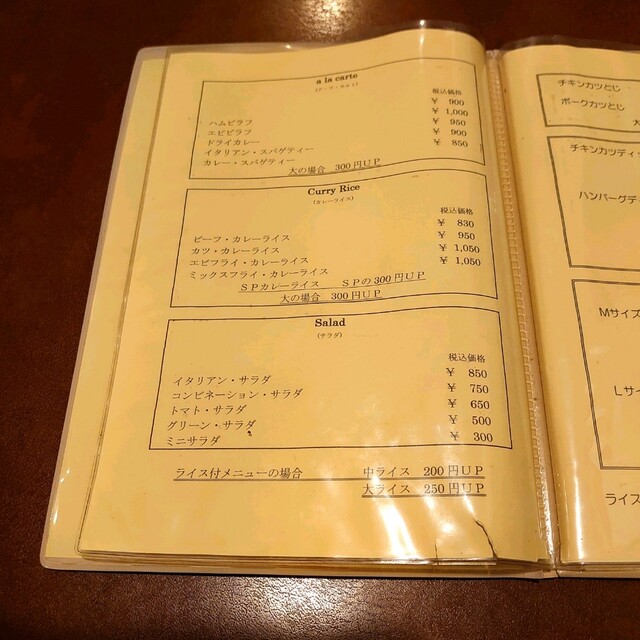 a la carte
(ア・ラ・カルト)
税込価格
ハムピラフ ￥ 900
エビピラフ ￥ 1,000
ドライカレー ￥ 950
イタリアン・スパゲティー ￥ 900
カレー・スパゲティー ￥ 850
大の場合 300円ＵＰ
Curry Rice
(カレーライス)
税込価格
ビーフ・カレーライス ￥ 830
カツ・カレーライス ￥ 950
エビフライ・カレーライス ￥ 1,050
ミックスフライ・カレーライス ￥ 1,050
ＳＰカレーライス ＳＰの300円ＵＰ
大の場合 300円ＵＰ
Salad
(サラダ)
税込価格
イタリアン・サラダ ￥ 850
コンビネーション・サラダ ￥ 750
トマト・サラダ ￥ 650
グリーン・サラダ ￥ 500
ミニサラダ ￥ 300
ライス付メニューの場合 中ライス 200円ＵＰ
大ライス 250円ＵＰ
チキンカツとじ
ポークカツとじ
大
チキンカツティッ
ハンバーグデ
Mサイズ
Lサイ
ライズ